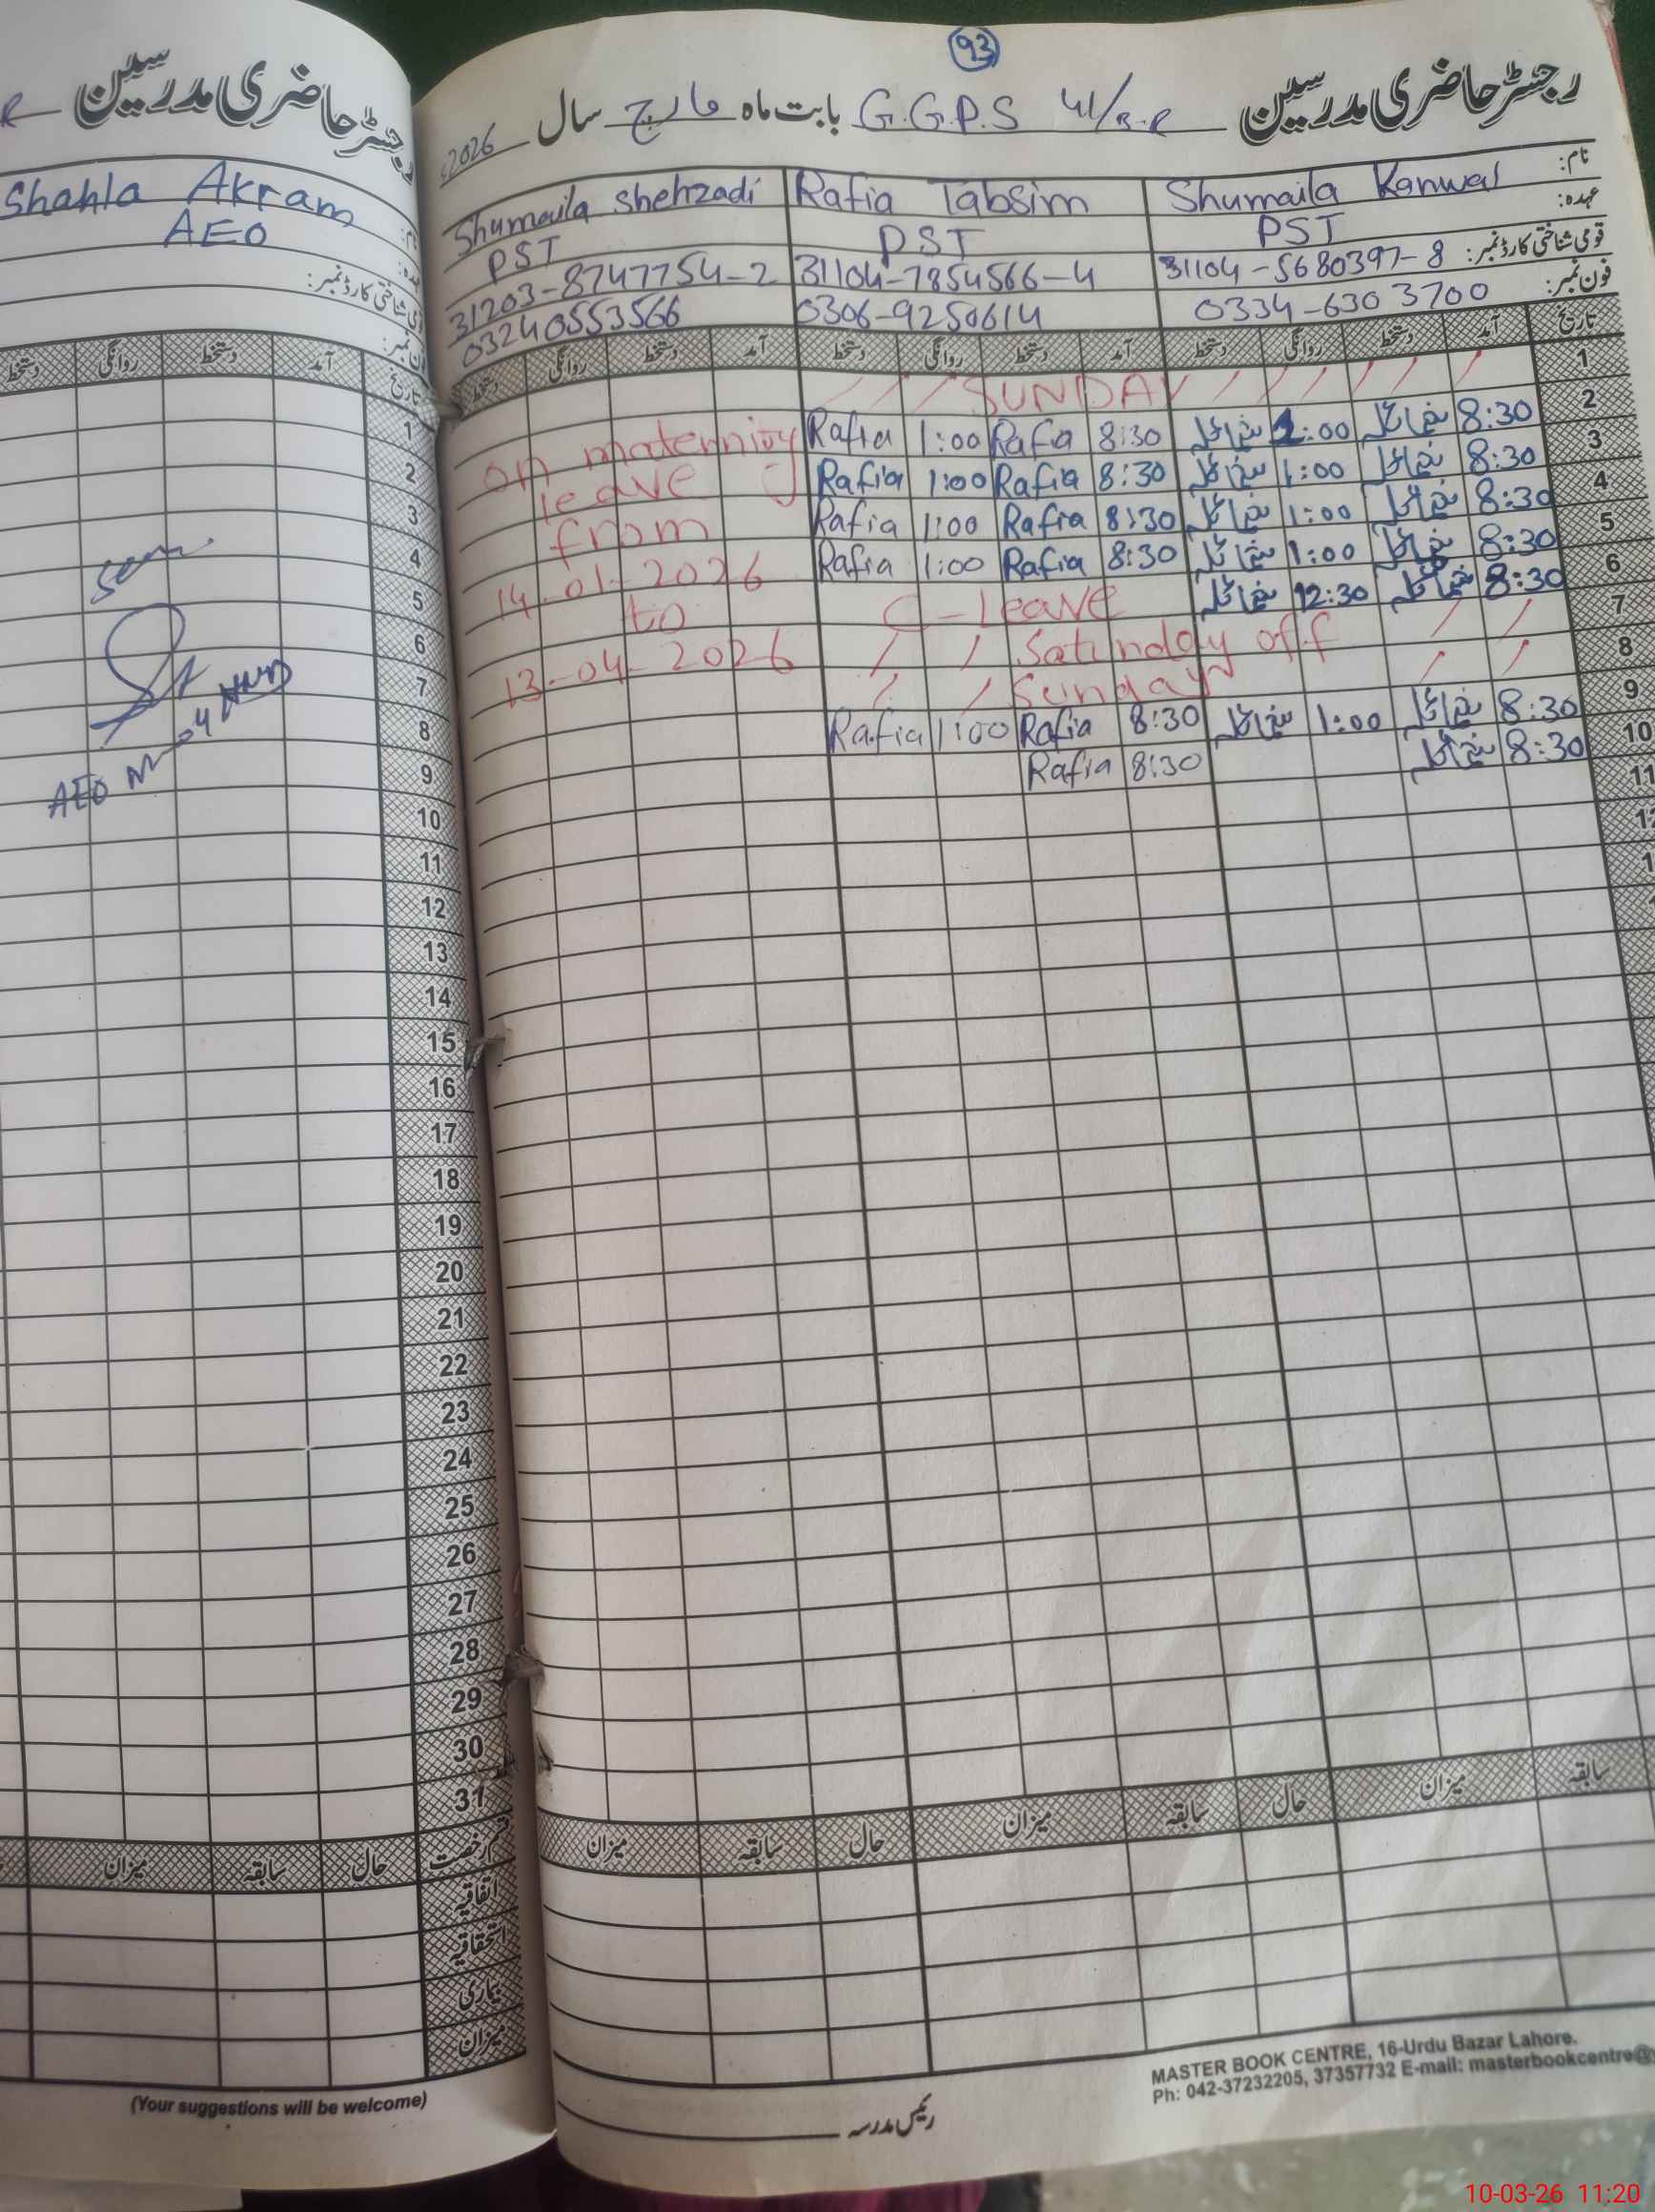 93
رجسٹر حاضری مدرسین G.G.P.S 41/3.R بابت ماہ مارچ سال 2026
نام: Shumaila Kanwal Rafia Tabsim Shumaila Shehzadi
عہدہ: PST PST PST
قومی شناختی کارڈ نمبر: 31104-5680397-8 31104-7854566-4 31203-8747754-2
فون نمبر: 0334-6303700 0306-9250614 03240553566
تاریخ آمد دستخط روانگی دستخط آمد دستخط روانگی دستخط آمد دستخط روانگی دستخط
1 SUNDAY
2 8:30 1:00 8:30 Rafia 1:00 Rafia
3 8:30 1:00 8:30 Rafia 1:00 Rafia
4 8:30 1:00 8:30 Rafia 1:00 Rafia
5 8:30 1:00 8:30 Rafia 1:00 Rafia
6 8:30 12:30 C-Leave
7 Saturday off
8 Sunday
9 8:30 1:00 8:30 Rafia 1:00 Rafia
10 8:30 8:30 Rafia
11
on maternity
leave
from
14-01-2026
to
13-04-2026
سابقہ میزان حال سابقہ میزان حال سابقہ میزان
رئیس مدرسہ
MASTER BOOK CENTRE, 16-Urdu Bazar Lahore.
Ph: 042-37232205, 37357732 E-mail: masterbookcentre@
رجسٹر حاضری مدرسین
Shahla Akram
AEO
قومی شناختی کارڈ نمبر:
فون نمبر:
تاریخ آمد دستخط روانگی دستخط
1
2
3
4
5
6
7
8
9
AEO
10
11
12
13
14
15
16
17
18
19
20
21
22
23
24
25
26
27
28
29
30
31
قسم رخصت حال سابقہ میزان
اتفاقیہ
استحقاقیہ
بیماری
میزان
(Your suggestions will be welcome)
10-03-26 11:20